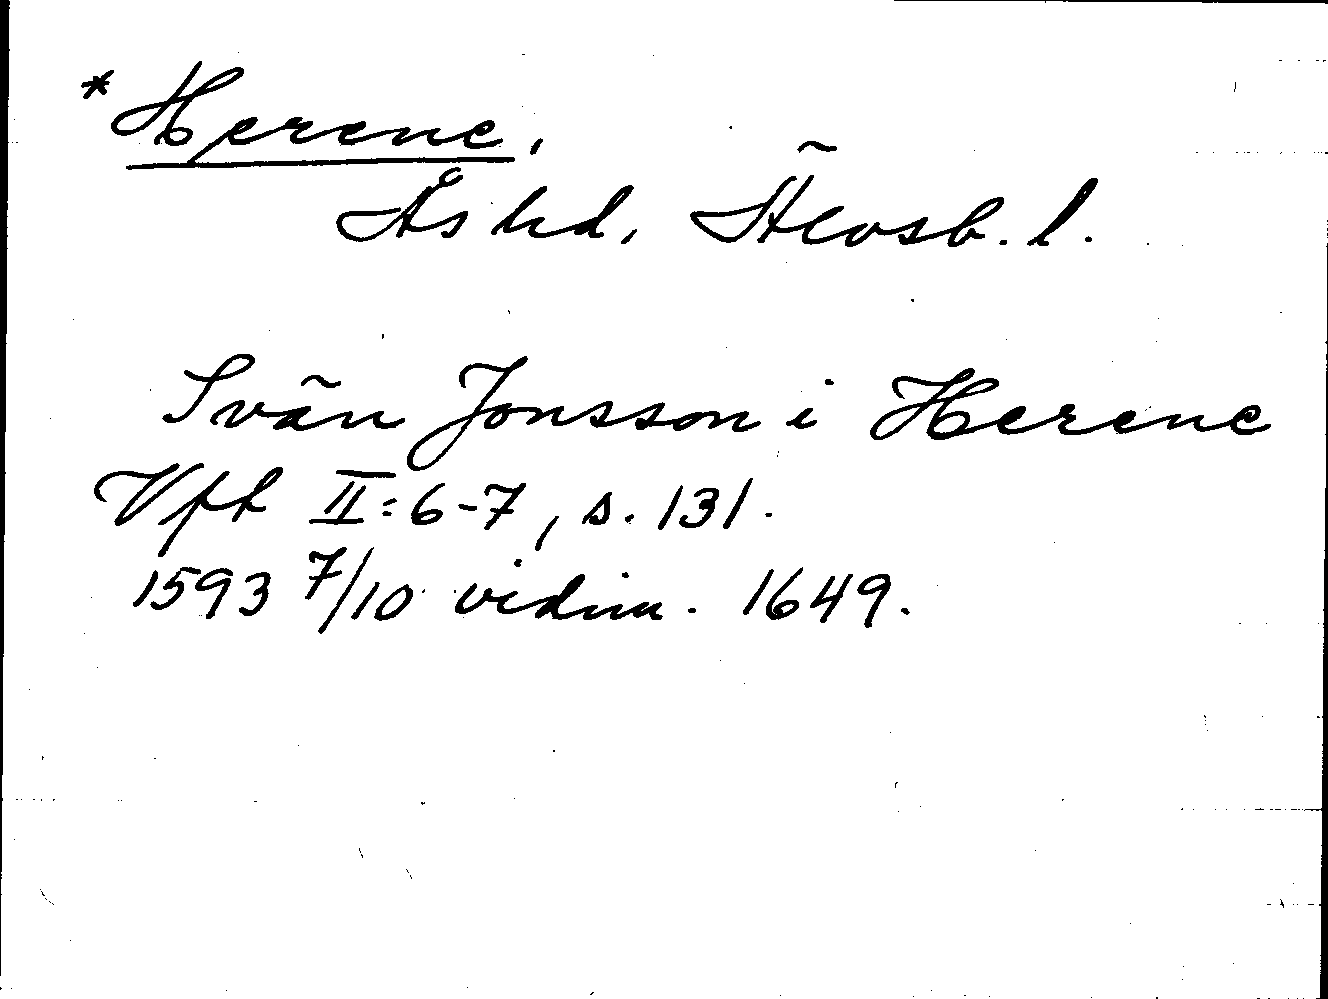 * Herene.
Ås hd, Älvsb. l.
Svän Jonsson i Herene
Vfh II:6-7, s. 131.
1593 7/10 vidim. 1649.